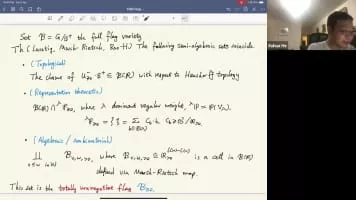 Set B = G/B⁺ the full flag variety.
Th (Lusztig, Marsh-Rietsch, The following semi-algebraic sets coincide.
• (Topological)
The closure of U⁻>0 · B⁺ ⊆ B(ℝ) with respect to Hausdorff topology
• (Representation theoretic)
B(ℝ) ∩ ᵡP≥0, where λ dominant regular weight,
• (Algebraic / combinatorial)
⊔ v≤w B v,w,>0, where B v,w,>0 ≅ ℝ>0 ^{l(w)-l(v)} is a cell in B(ℝ)
defined via Marsh-Rietsch map.
This set is the totally nonnegative flag B≥0.
Xuhua He